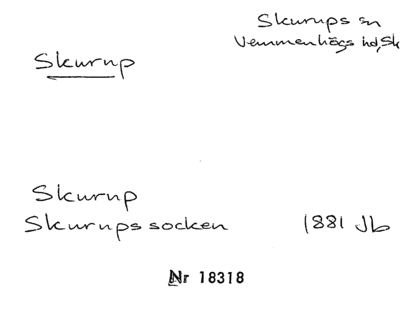 Skurups sn
Vemmenhögs hd, Sk
Skurup
Skurup
Skurups socken 1881 Jb
Nr 18318